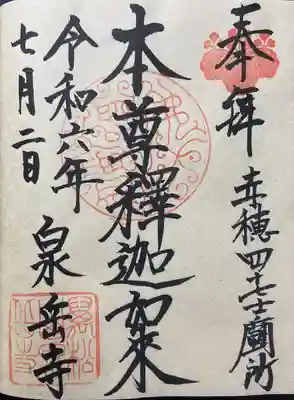 奉拝
赤穂四十七士 廟所
本尊釋迦如來
令和六年
七月二日
泉岳寺